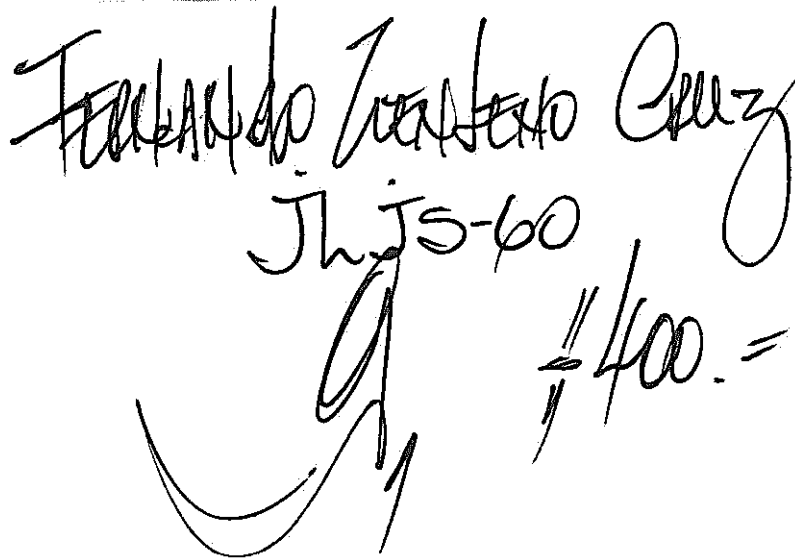 FERNANDO ZENTENO CRUZ
JL.JS-60
$400.=